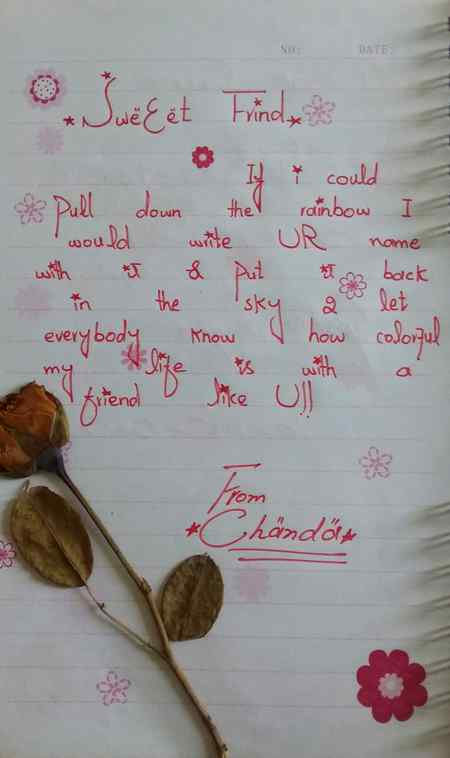 NO: DATE:
*SwëEët Frind*
If i could
Pull down the rainbow I
would write UR name
with it & put it back
in the sky 2 let
everybody know how colorful
my life is with a
friend like U!!
From
*Chändä*